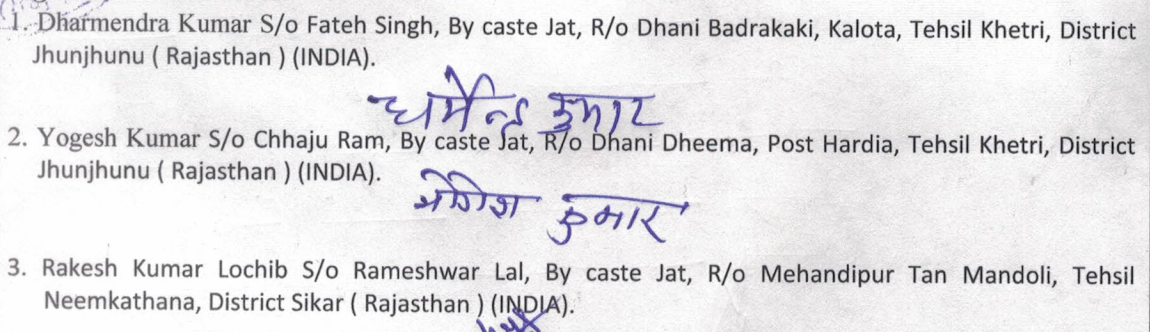 1. Dharmendra Kumar S/o Fateh Singh, By caste Jat, R/o Dhani Badrakaki, Kalota, Tehsil Khetri, District
Jhunjhunu ( Rajasthan ) (INDIA).
धर्मेन्द्र कुमार
2. Yogesh Kumar S/o Chhaju Ram, By caste Jat, R/o Dhani Dheema, Post Hardia, Tehsil Khetri, District
Jhunjhunu ( Rajasthan ) (INDIA).
योगेश कुमार
3. Rakesh Kumar Lochib S/o Rameshwar Lal, By caste Jat, R/o Mehandipur Tan Mandoli, Tehsil
Neemkathana, District Sikar ( Rajasthan ) (INDIA).